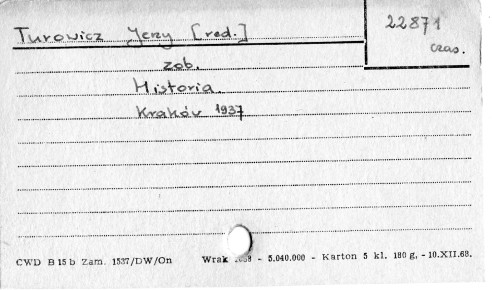 Turowicz Jerzy [red.]
22871
czas.
zob.
Historia
Kraków 1937
CWD B 15 b Zam. 1537/DW/On Wrak - 5.040.000 - Karton 5 kl. 180 g. - 10.XII.68.